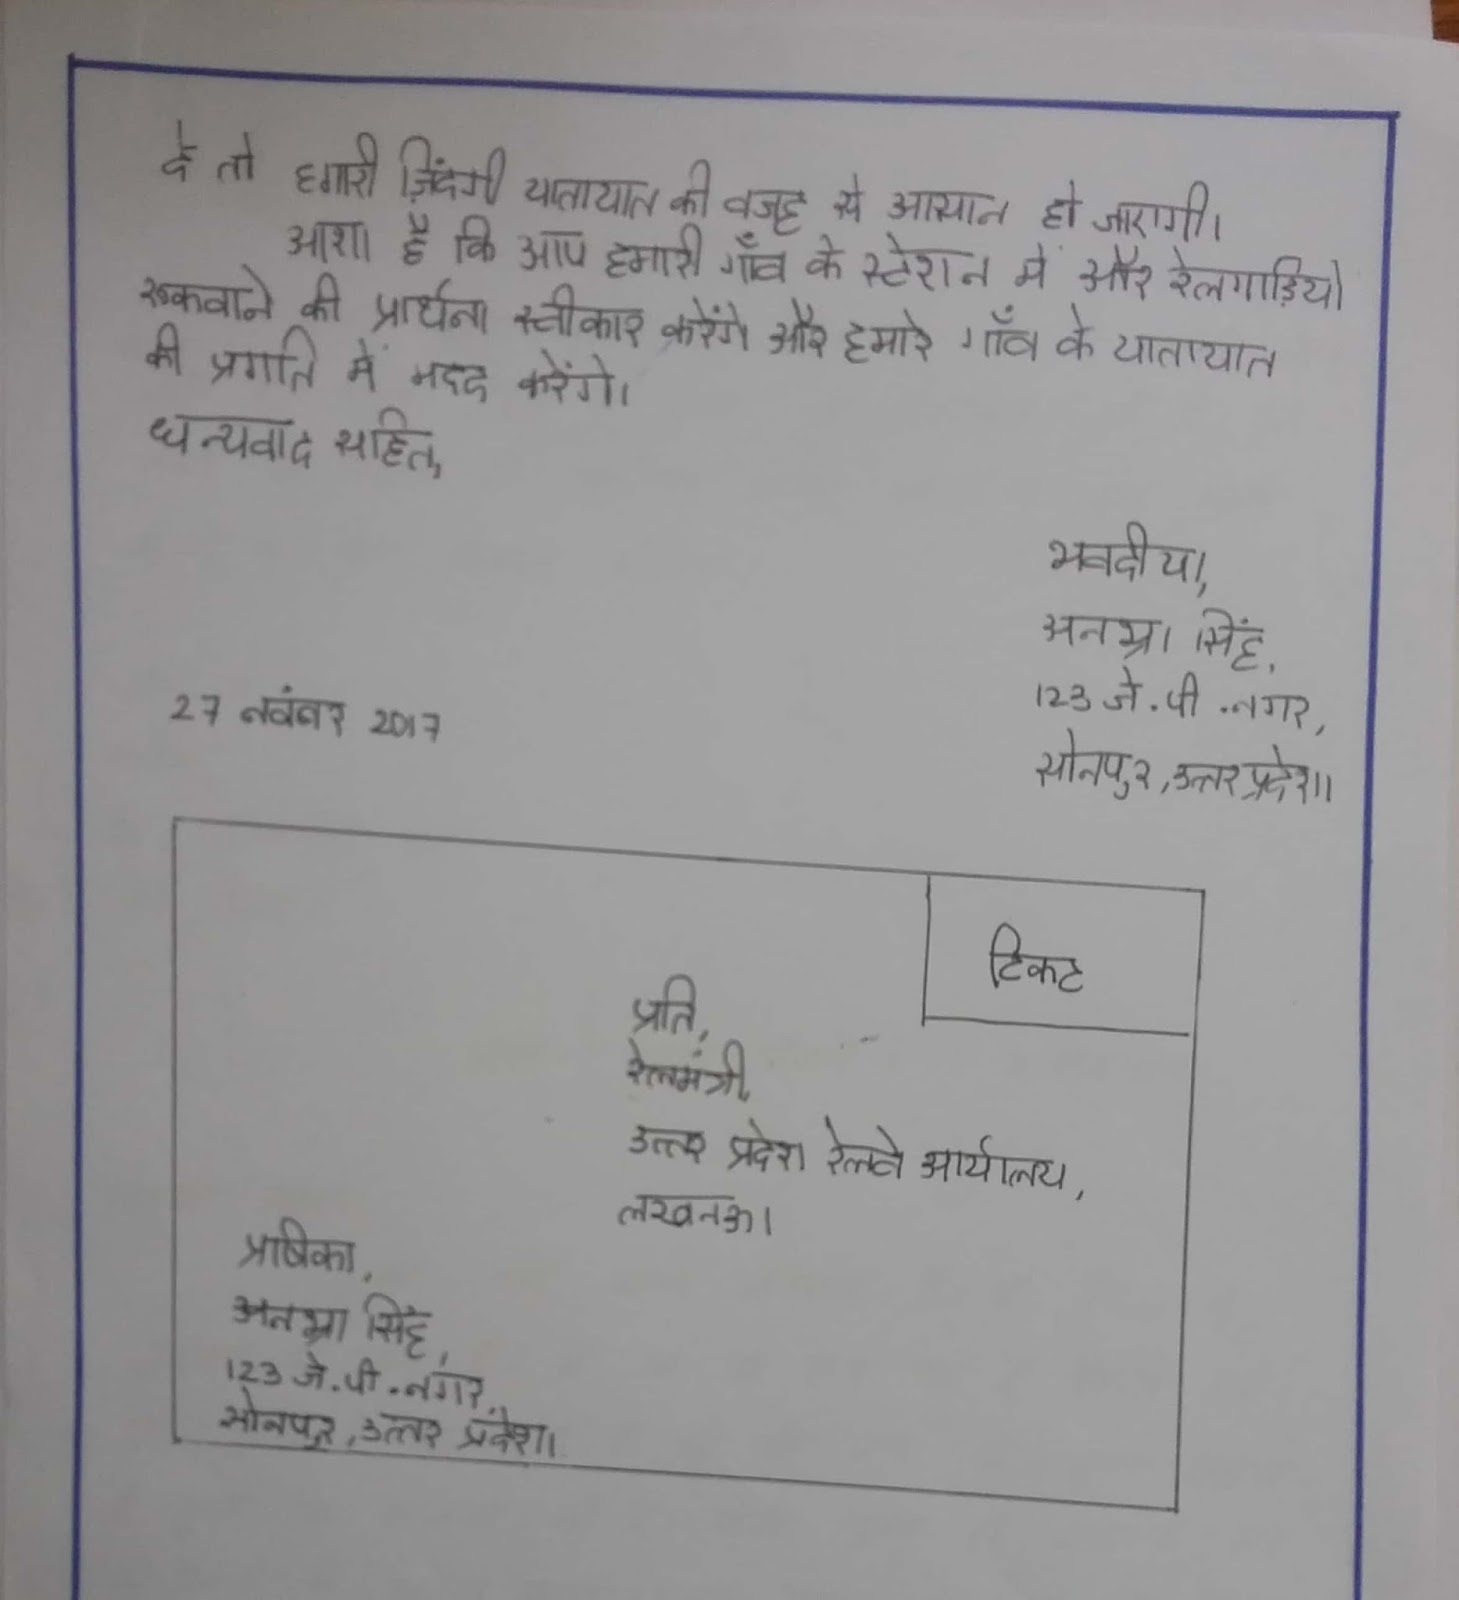 दे तो हमारी ज़िंदगी यातायात की वजह से आसान हो जाएगी।
आशा है कि आप हमारी गाँव के स्टेशन में और रेलगाड़ियो
रुकवाने की प्रार्थना स्वीकार करेंगे और हमारे गाँव के यातायात
की प्रगति में मदद करेंगे।
धन्यवाद सहित,
भवदीया,
अनभ्रा सिंह,
123 जे.पी.नगर,
27 नवंबर 2017
सोनपुर, उत्तर प्रदेश।
टिकट
प्रति,
रेलमंत्री,
उत्तर प्रदेश रेलवे आर्यालय,
लखनऊ।
प्रषिका,
अनभ्रा सिंह,
123 जे.पी.नगर,
सोनपुर, उत्तर प्रदेश।